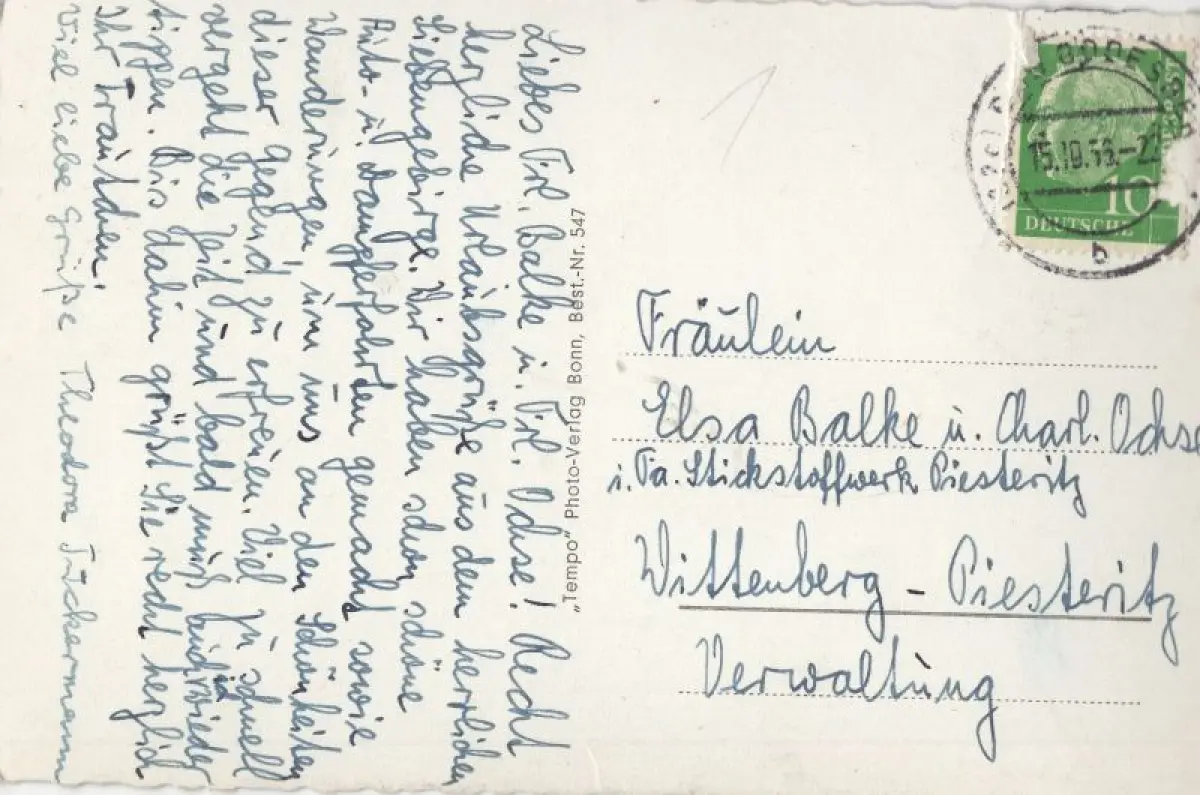 Liebes Frl. Balke u. Frl. Ochse! Recht
herzliche Urlaubsgrüße aus dem herrlichen
Siebengebirge. Wir haben schon schöne
Auto- u. Dampferfahrten gemacht sowie
Wanderungen, um uns an den Schönheiten
dieser Gegend zu erfreuen. Viel zu schnell
vergeht die Zeit und bald muß ich wieder
tippen. Bis dahin grüßt Sie recht herzlich
Ihr Trautchen.
Viel liebe Grüße Theodora
"Tempo" Photo-Verlag Bonn, Best.-Nr. 547
GODESBERG
15.10.56.-2
b
10
DEUTSCHE
Fräulein
Elsa Balke u. Charl. Ochse
i. Fa. Stickstoffwerk Piesteritz
Wittenberg - Piesteritz
Verwaltung